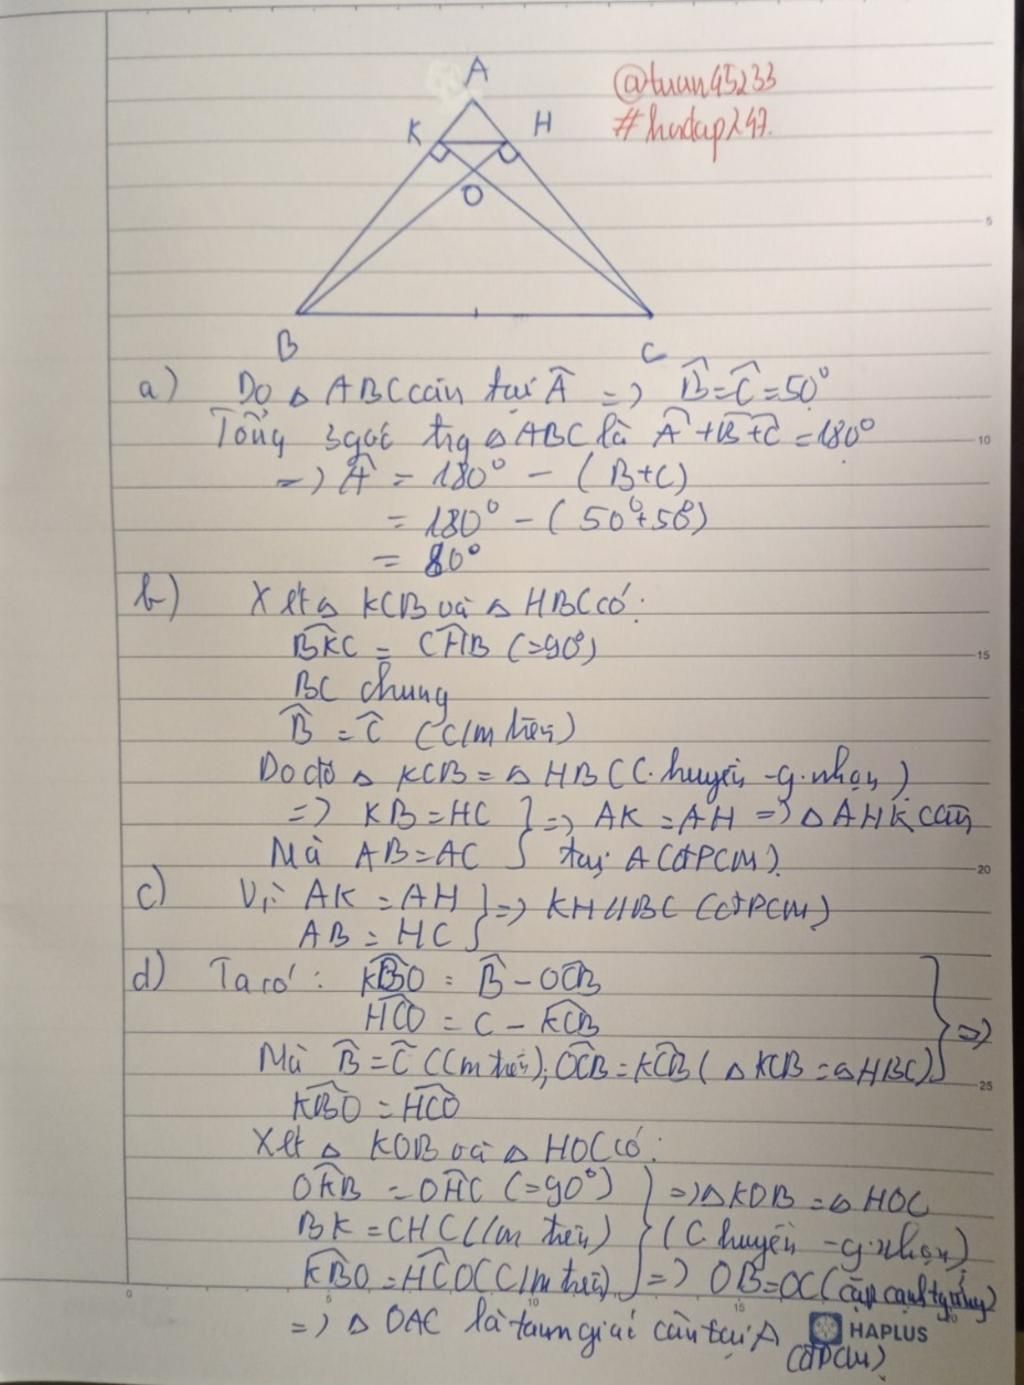 A
@tuan45233
K
H
#hoidap247.
O
B
C
a) Do △ ABC cân tại Â => B̂=Ĉ=50°
Tổng 3 góc trg △ ABC là Â+B̂+Ĉ=180°
=> Â = 180° - (B+C)
= 180° - (50°+50°)
= 80°
b) Xét △ KCB và △ HBC có:
BK̂C = CĤB (=90°)
BC chung
B̂ = Ĉ (C/m trên)
Do đó △ KCB = △ HBC (C.huyền -g.nhọn)
=> KB = HC } => AK = AH => △ AHK cân
Mà AB = AC } tại A (đPCM).
c) Vì AK = AH } => KH//BC (đPCM)
AB = HC }
d) Ta có: KB̂O = B̂ - OĈB
HĈO = C - KĈB } =>
Mà B̂ = Ĉ (C/m trên); OĈB = KĈB (△ KCB = △ HBC)
KB̂O = HĈO
Xét △ KOB và △ HOC có:
OK̂B = OĤC (=90°) } => △ KOB = △ HOC
BK = CHC (C/m trên) } (C.huyền -g.nhọn)
KB̂O = HĈO (C/m trên) } => OB=OC (cặp cạnh tg ứng)
=> △ OAC là tam giác cân tại A
(đPCM)
HAPLUS
5
10
15
20
25
0
5
10
15
20